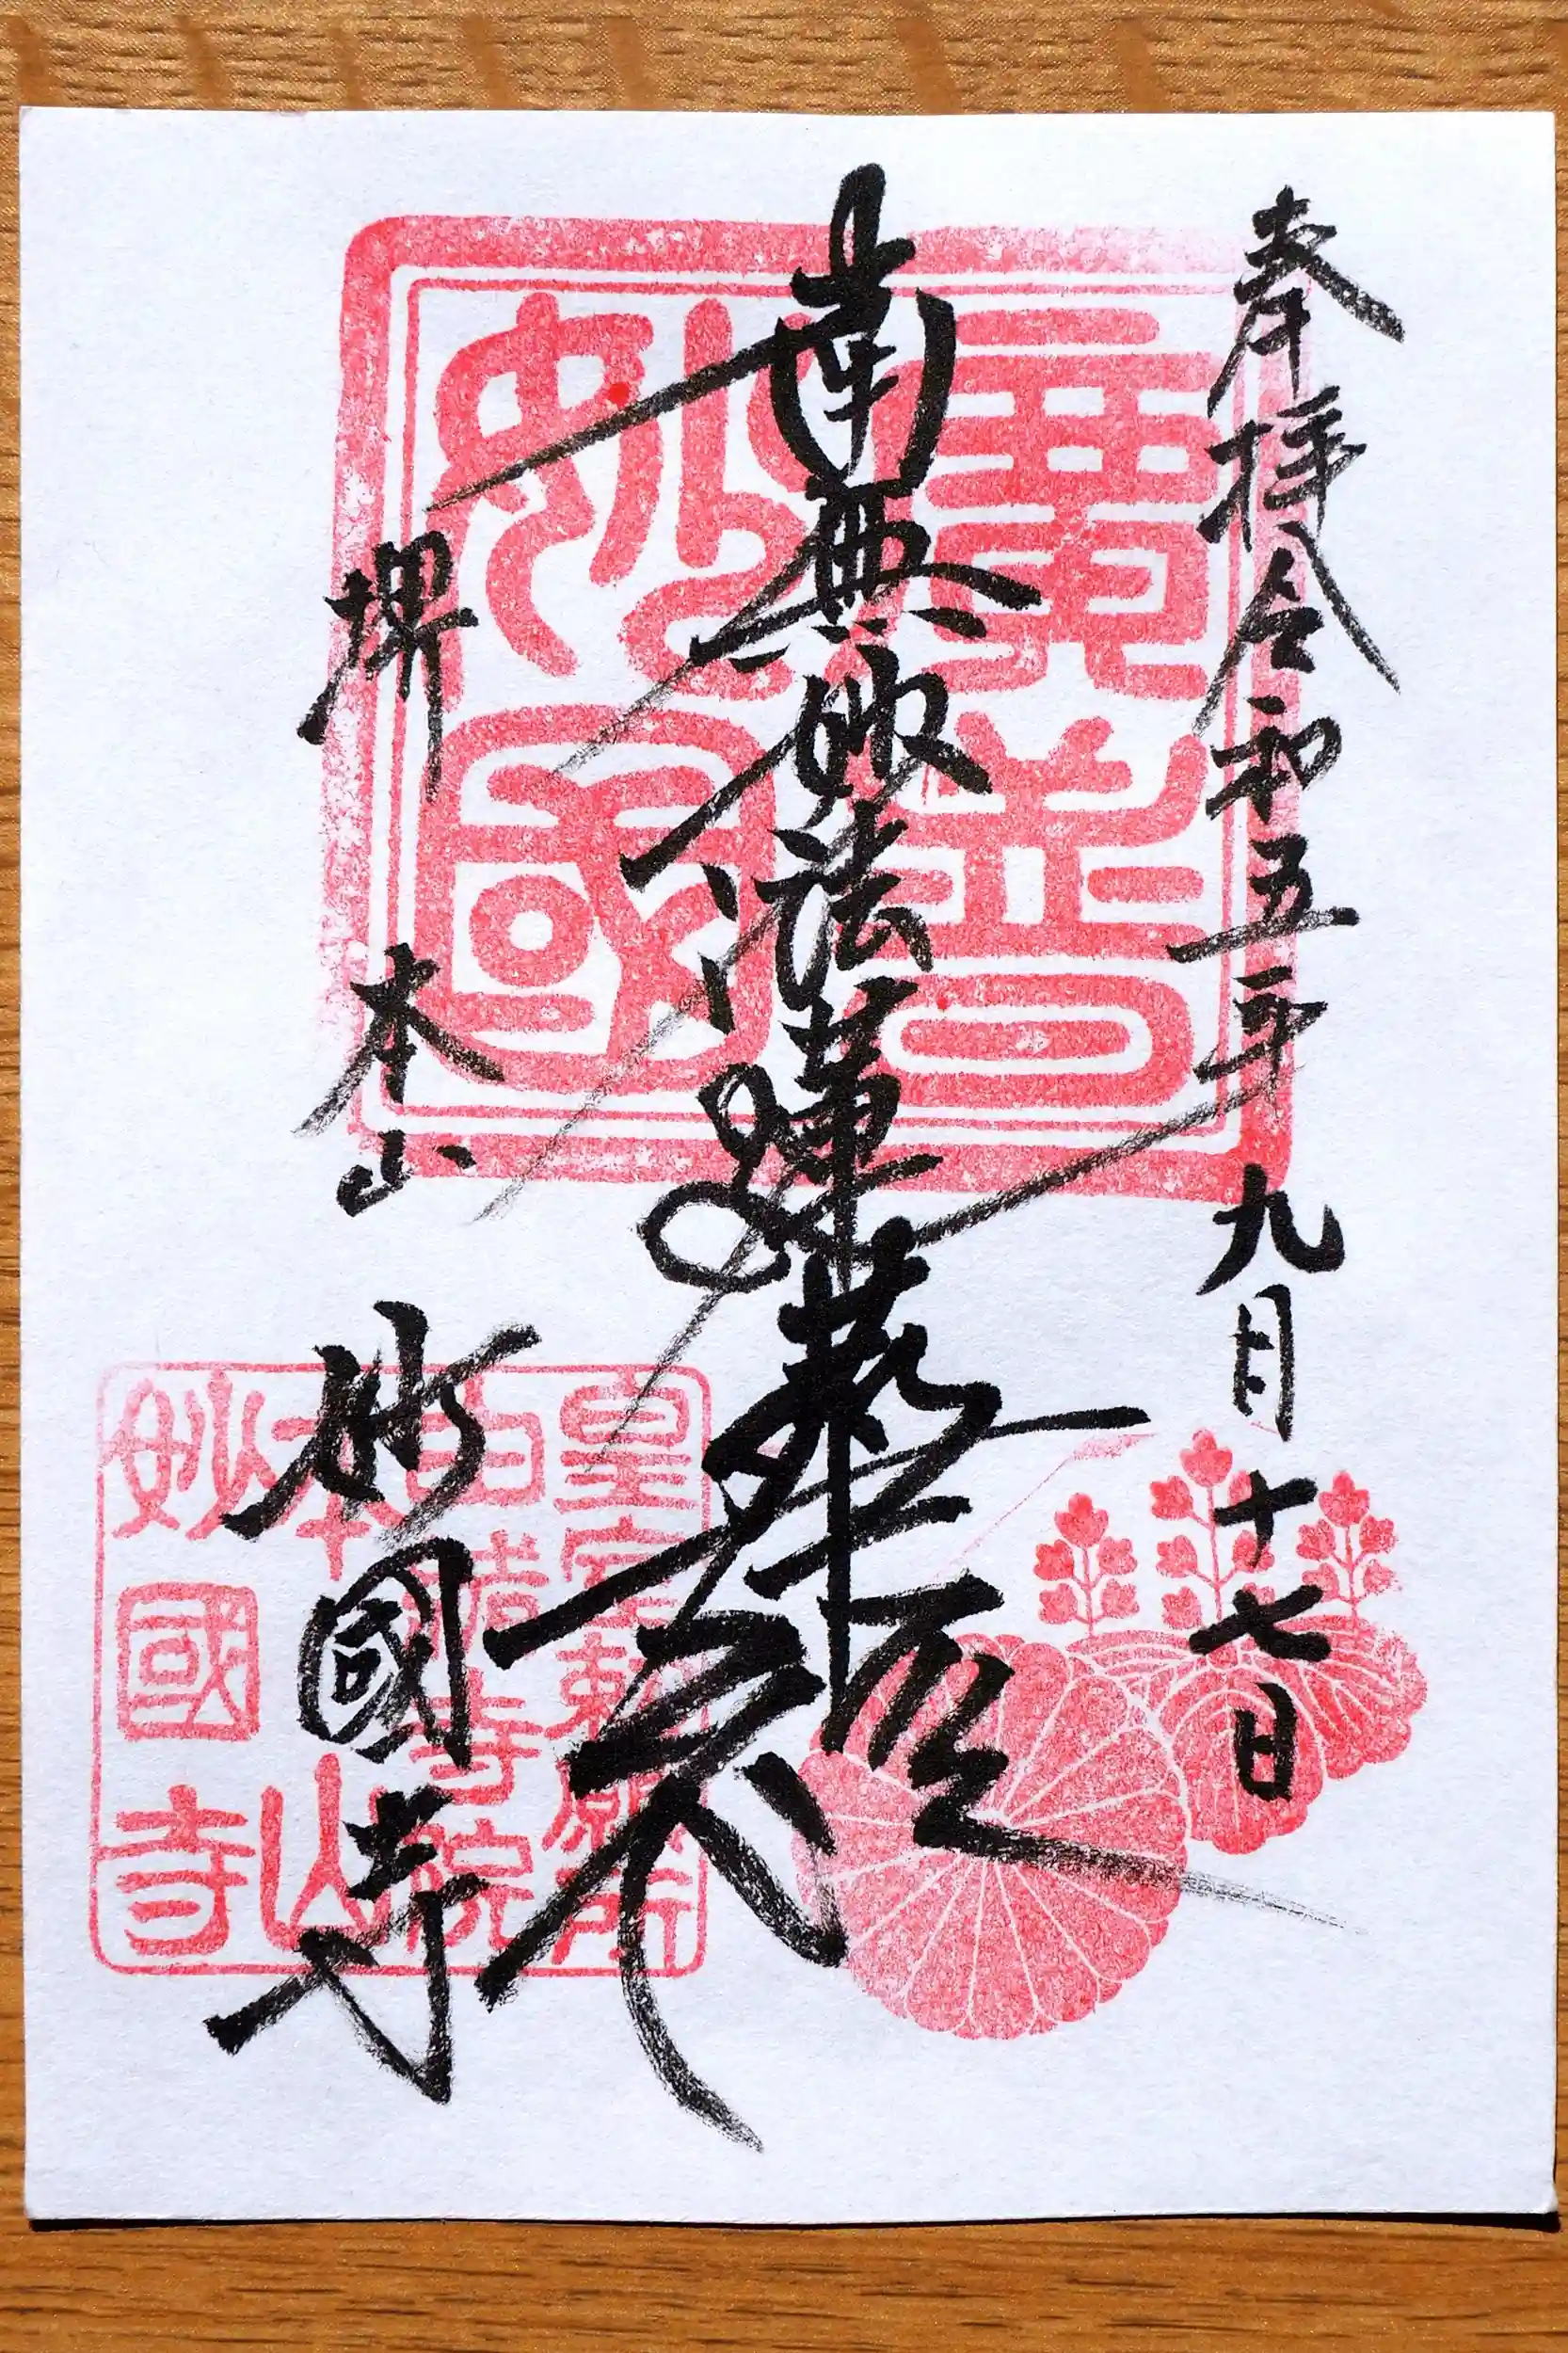 奉拝 令和五年九月十七日
南無妙法蓮華經
堺 本山 妙國寺
廣普
妙國
皇室勅願所
由緒寺院
本山
妙國寺